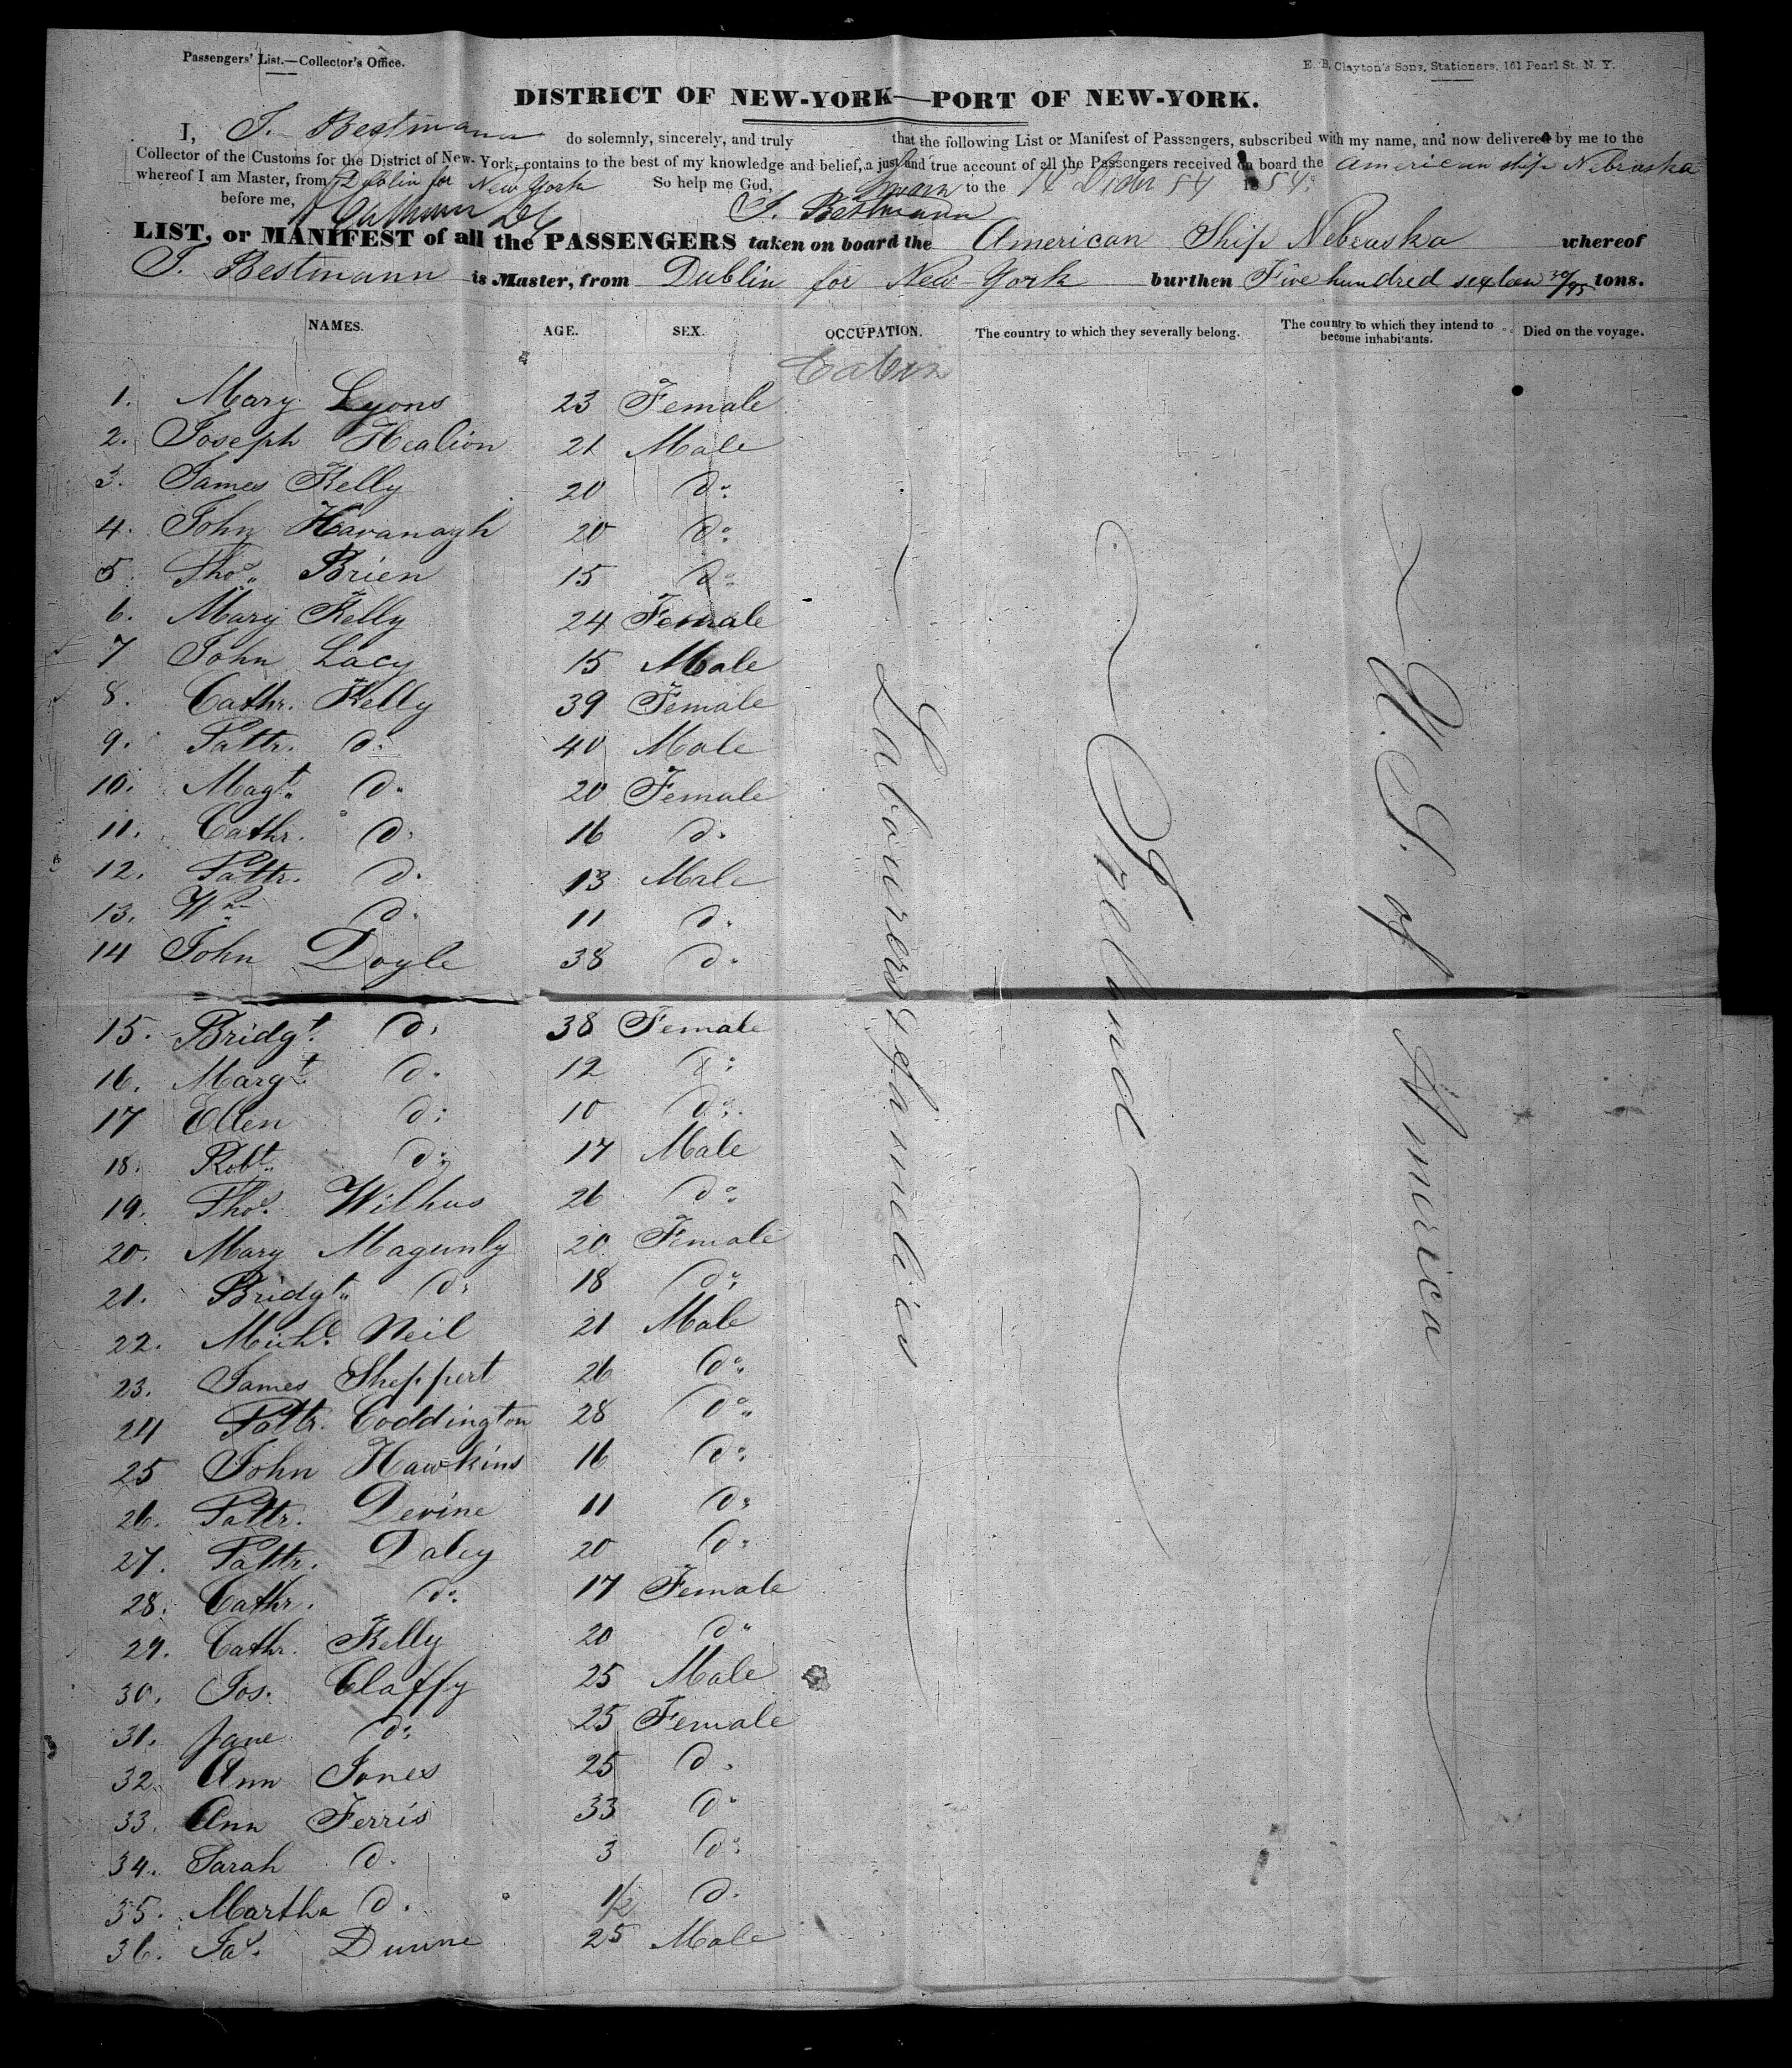 Passengers' List.—Collector's Office.
E. B. Clayton's Sons, Stationers, 161 Pearl St. N. Y.
DISTRICT OF NEW-YORK—PORT OF NEW-YORK.
I, J. Bestmann do solemnly, sincerely, and truly that the following List or Manifest of Passengers, subscribed with my name, and now delivered by me to the
Collector of the Customs for the District of New-York, contains to the best of my knowledge and belief, a just and true account of all the Passengers received on board the American ship Nebraska
whereof I am Master, from Dublin for New York So help me God,
Sworn to the 54
before me, J. Bestmann
LIST, or MANIFEST of all the PASSENGERS taken on board the American Ship Nebraska whereof
J. Bestmann is Master, from Dublin for New-York burthen Five hundred sixteen 30/95 tons.
NAMES. AGE. SEX. OCCUPATION. The country to which they severally belong. The country to which they intend to become inhabitants. Died on the voyage.
1. Mary Lyons 23 Female
2. Joseph Healion 21 Male
3. James Kelly 20 Do
4. John Kavanagh 20 Do
5. Thos. Brien 15 Do
6. Mary Kelly 24 Female
7 John Lacy 15 Male
8. Cathr. Kelly 39 Female
9. Pattr. Do 40 Male
10. Magt. Do 20 Female
11. Cathr. Do 16 Do
12. Pattr. Do 13 Male
13. Wm Do 11 Do
14 John Doyle 38 Do
15. Bridgt. Do 38 Female
16. Margt. Do 12 Do
17 Ellen Do 10 Do
18. Robt. Do 17 Male
19. Thos. Wilhus 26 Do
20. Mary Magunly 20 Female
21. Bridgt. Do 18 Do
22. Michl. Neil 21 Male
23. James Sheppert 26 Do
24 Pattr. Coddington 28 Do
25 John Hawkins 16 Do
26. Pattr. Devine 11 Do
27. Pattr. Daley 20 Do
28. Cathr. Do 17 Female
29. Cathr. Kelly 20 Do
30. Jos. Claffy 25 Male
31. Jane Do 25 Female
32. Ann Jones 25 Do
33. Ann Ferris 33 Do
34. Sarah Do 3 Do
35. Martha Do 1/2 Do
36. Jas. Dunne 25 Male
Labourers & families
Ireland
U. S. of America